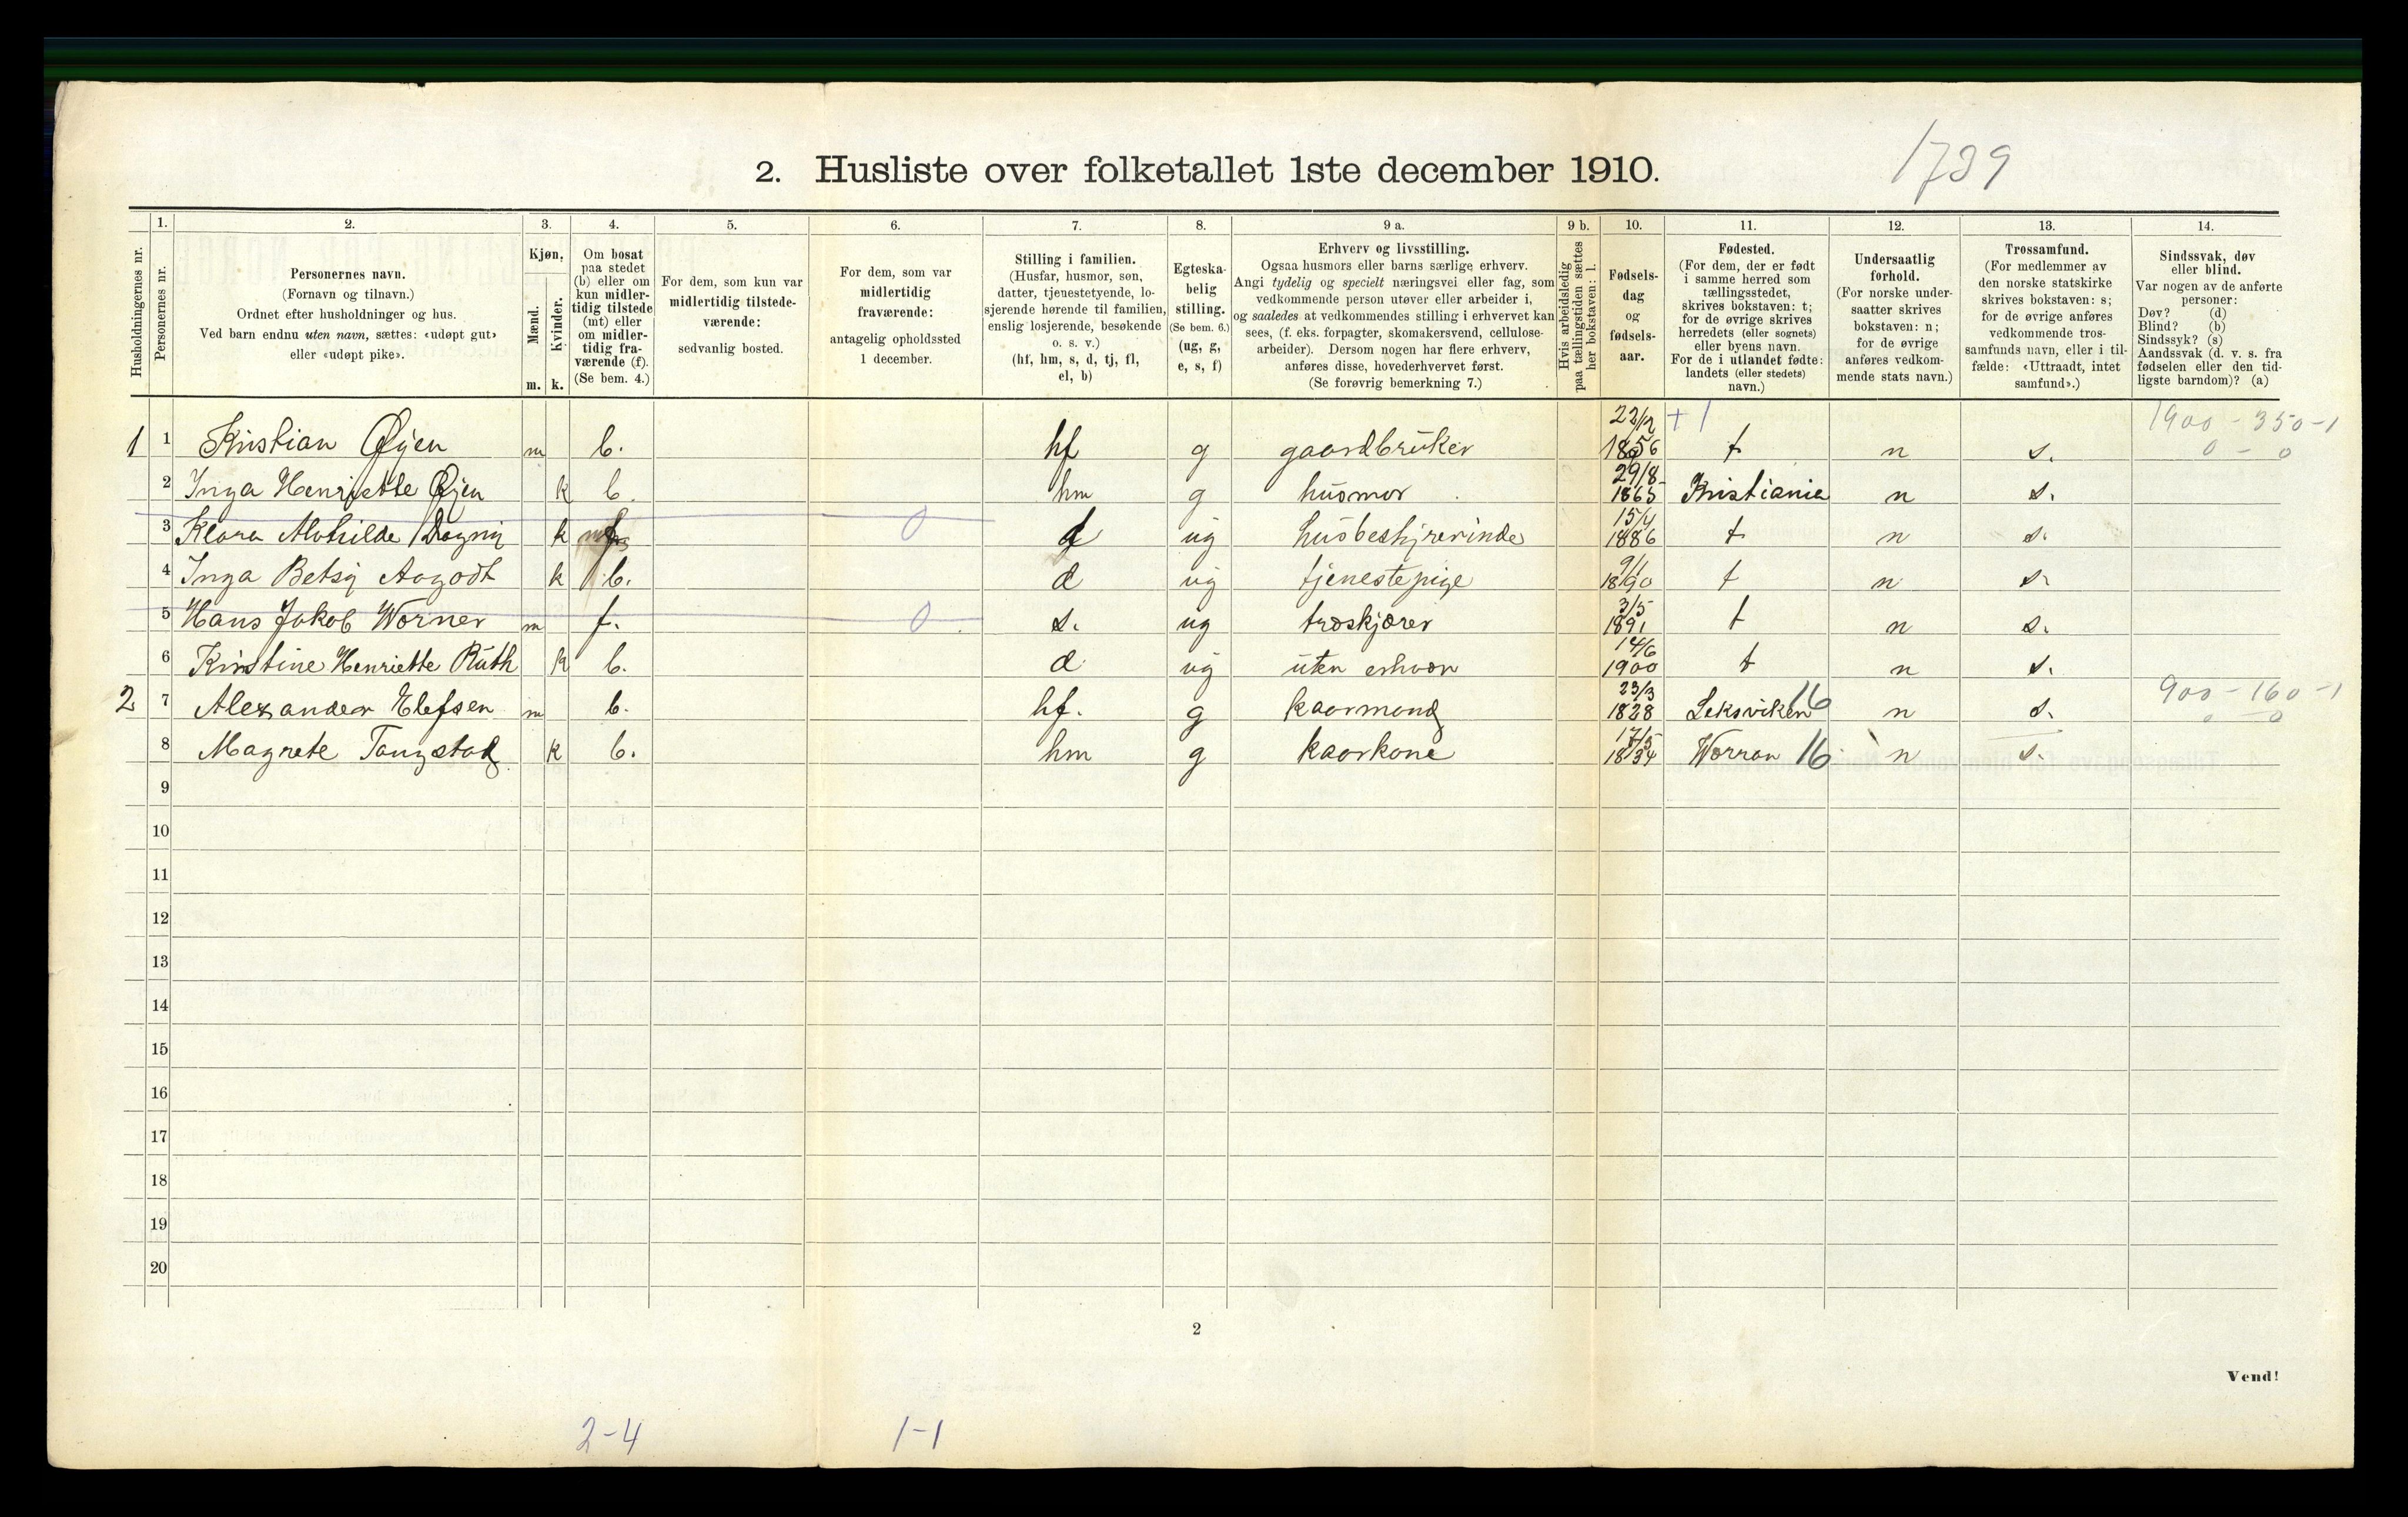 2. Husliste over folketallet 1ste december 1910.
1739
Husholdningernes nr.
1.
Personernes nr.
2.
Personernes navn.
(Fornavn og tilnavn.)
Ordnet efter husholdninger og hus.
Ved barn endnu uten navn, sættes: «udøpt gut»
eller «udøpt pike».
3.
Kjøn.
Mænd.
Kvinder.
m. k.
4.
Om bosat
paa stedet
(b) eller om
kun midler-
tidig tilstede
(mt) eller
om midler-
tidig fra-
værende (f).
(Se bem. 4.)
5.
For dem, som kun var
midlertidig tilstede-
værende:
sedvanlig bosted.
6.
For dem, som var
midlertidig
fraværende:
antagelig opholdssted
1 december.
7.
Stilling i familien.
(Husfar, husmor, søn,
datter, tjenestetyende, lo-
sjerende hørende til familien,
enslig losjerende, besøkende
o. s. v.)
(hf, hm, s, d, tj, fl,
el, b)
8.
Egteska-
belig
stilling.
(Se bem. 6.)
(ug, g,
e, s, f)
9 a.
Erhverv og livsstilling.
Ogsaa husmors eller barns særlige erhverv.
Angi tydelig og specielt næringsvei eller fag, som
vedkommende person utøver eller arbeider i,
og saaledes at vedkommendes stilling i erhvervet kan
sees, (f. eks. forpagter, skomakersvend, cellulose-
arbeider). Dersom nogen har flere erhverv,
anføres disse, hovederhvervet først.
(Se forøvrig bemerkning 7.)
9 b.
Hvis arbeidsledig
paa tællingstiden sættes
her bokstaven: l.
10.
Fødsels-
dag
og
fødsels-
aar.
11.
Fødested.
(For dem, der er født
i samme herred som
tællingsstedet,
skrives bokstaven: t;
for de øvrige skrives
herredets (eller sognets)
eller byens navn.
For de i utlandet fødte:
landets (eller stedets)
navn.)
12.
Undersaatlig
forhold.
(For norske under-
saatter skrives
bokstaven: n;
for de øvrige
anføres vedkom-
mende stats navn.)
13.
Trossamfund.
(For medlemmer av
den norske statskirke
skrives bokstaven: s;
for de øvrige anføres
vedkommende tros-
samfunds navn, eller i til-
fælde: «Uttraadt, intet
samfund».)
14.
Sindssvak, døv
eller blind.
Var nogen av de anførte
personer:
Døv? (d)
Blind? (b)
Sindssyk? (s)
Aandssvak (d. v. s. fra
fødselen eller den tid-
ligste barndom)? (a)
1 1 Kristian Øyen m b. hf g gaardbruker 22/12 1856 + 1 t n s. 1900 - 350 - 1 0 - 0
2 Inga Henriette Øyen k b. hm g husmor 29/8 1865 Kristiania n s.
3 Klara Mathilde Dagny k f 0 d ug husbestyrerinde 15/4 1886 t n s.
4 Inga Betsy Aagodt k b. d ug tjenestepige 9/1 1890 t n s.
5 Hans Jakob Werner m f. 0 s. ug træskjærer 3/5 1891 t n s.
6 Kristine Henriette Ruth k b. d ug uten erhverv 14/6 1900 t n s.
2 7 Alexander Elefsen m b. hf. g kaarmand 23/3 1828 Leksviken 16 n s. 900 - 160 - 1 0 - 0
8 Magrete Tangstad k b. hm g kaarkone 17/5 1834 Worran 16 n s.
9
10
11
12
13
14
15
16
17
18
19
20
2
Vend!
2-4 1-1